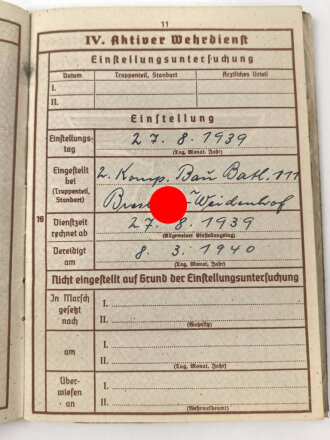 11
IV. Aktiver Wehrdienst
Einstellungsuntersuchung
Datum Truppenteil, Standort Ärztliches Urteil
I.
II.
Einstellung
Einstellungs-
tag
27. 8. 1939
(Tag, Monat, Jahr)
Eingestellt
bei
(Truppenteil,
Standort)
2. Komp. Bau Batl. 111
Weidenhof
16
Dienstzeit
rechnet ab
27. 8. 1939
(Allgemeiner Einstellungstag)
Vereidigt
am
8. 3. 1940
(Tag, Monat, Jahr)
Nicht eingestellt auf Grund der Einstellungsuntersuchung
In Marsch
gesetzt
nach
I.
II.
(Wohnsitz)
am
I.
II.
(Tag, Monat, Jahr)
Über-
wiesen
an
I.
II.
(Wehrmeldeamt)